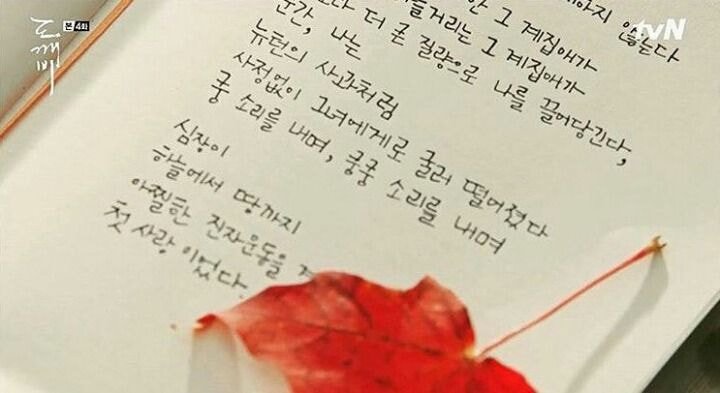 도깨비
본 4화
tvN
않는다
그 계집애가
그 계집애가
더 큰 질량으로 나를 끌어당긴다,
순간, 나는
뉴턴의 사과처럼
사정없이 그녀에게로 굴러 떨어졌다
쿵 소리를 내며, 쿵쿵 소리를 내며
심장이
하늘에서 땅까지
아찔한 진자운동을
첫 사랑이었다.